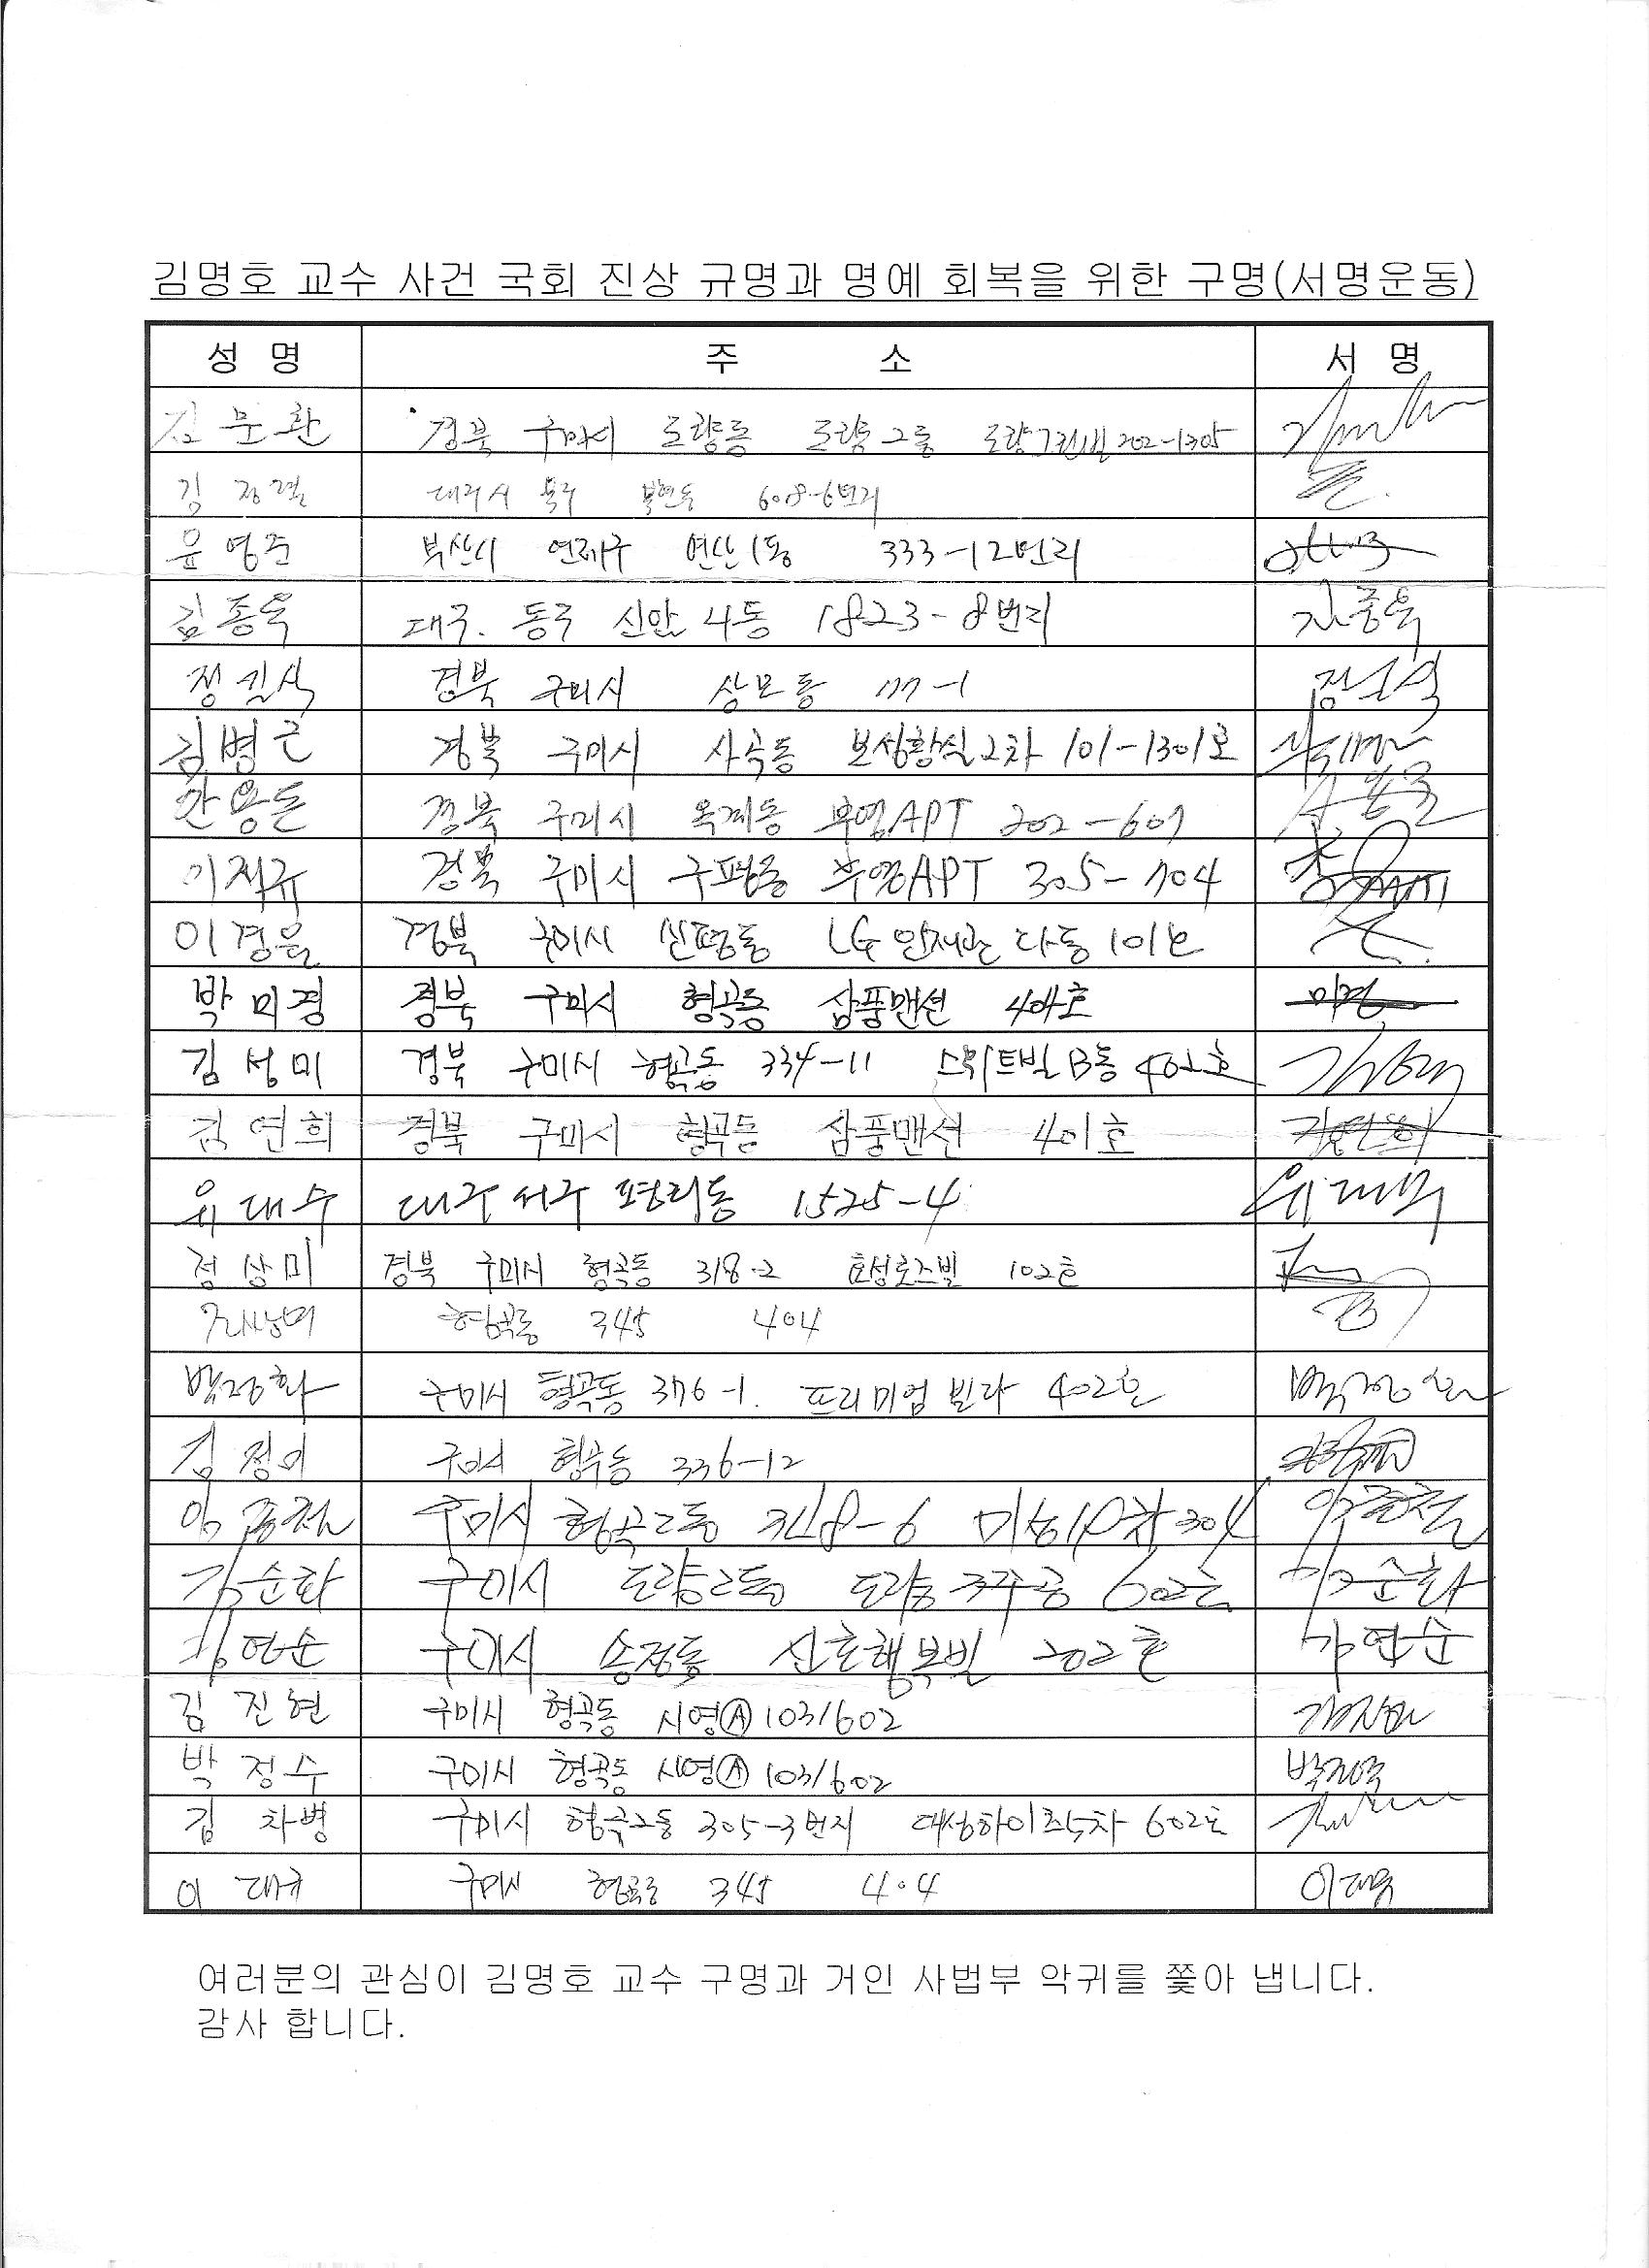 김명호 교수 사건 국회 진상 규명과 명예 회복을 위한 구명(서명운동)
성 명 주 소 서 명
김문환 경북 구미시 도량동 도량2동 도량그린빌 202-1305
김 대구시 북구 복현동 608-6번지
윤영준 부산시 연제구 연산1동 333-12번지
김종욱 대구. 동구 신암4동 1823-8번지 김종욱
정길식 경북 구미시 상모동 177-1
김병근 경북 구미시 사곡동 보성황실2차 101-1301호
경북 구미시 옥계동 부영APT 202-607
이직규 경북 구미시 구평동 부영APT 305-704
이경율 경북 구미시 신평동 LG 다동 101호
박미경 경북 구미시 형곡동 삼풍맨션 404호 미경
김성미 경북 구미시 형곡동 334-11 스위트빌 B동 402호
김연희 경북 구미시 형곡동 삼풍맨션 401호 김연희
유대수 대구 서구 평리동 1525-4 유대수
정상미 경북 구미시 형곡동 318-2 효성로즈빌 102호
형곡동 345 404
백정화 구미시 형곡동 376-1. 프리미엄빌라 402호 백정화
김정미 구미시 형곡동 336-12
구미시 형곡2동 304
김순화 구미시 도량2동 도량 주공 602호 김순화
김연순 구미시 송정동 신호행복빌 202호 김연순
김진현 구미시 형곡동 시영Ⓐ103/602 김진현
박정수 구미시 형곡동 시영Ⓐ103/602 박정수
김차병 구미시 형곡2동 305-3번지 대성하이츠5차 602호
이대규 구미시 형곡동 345 404 이대규
여러분의 관심이 김명호 교수 구명과 거인 사법부 악귀를 쫓아 냅니다.
감사 합니다.